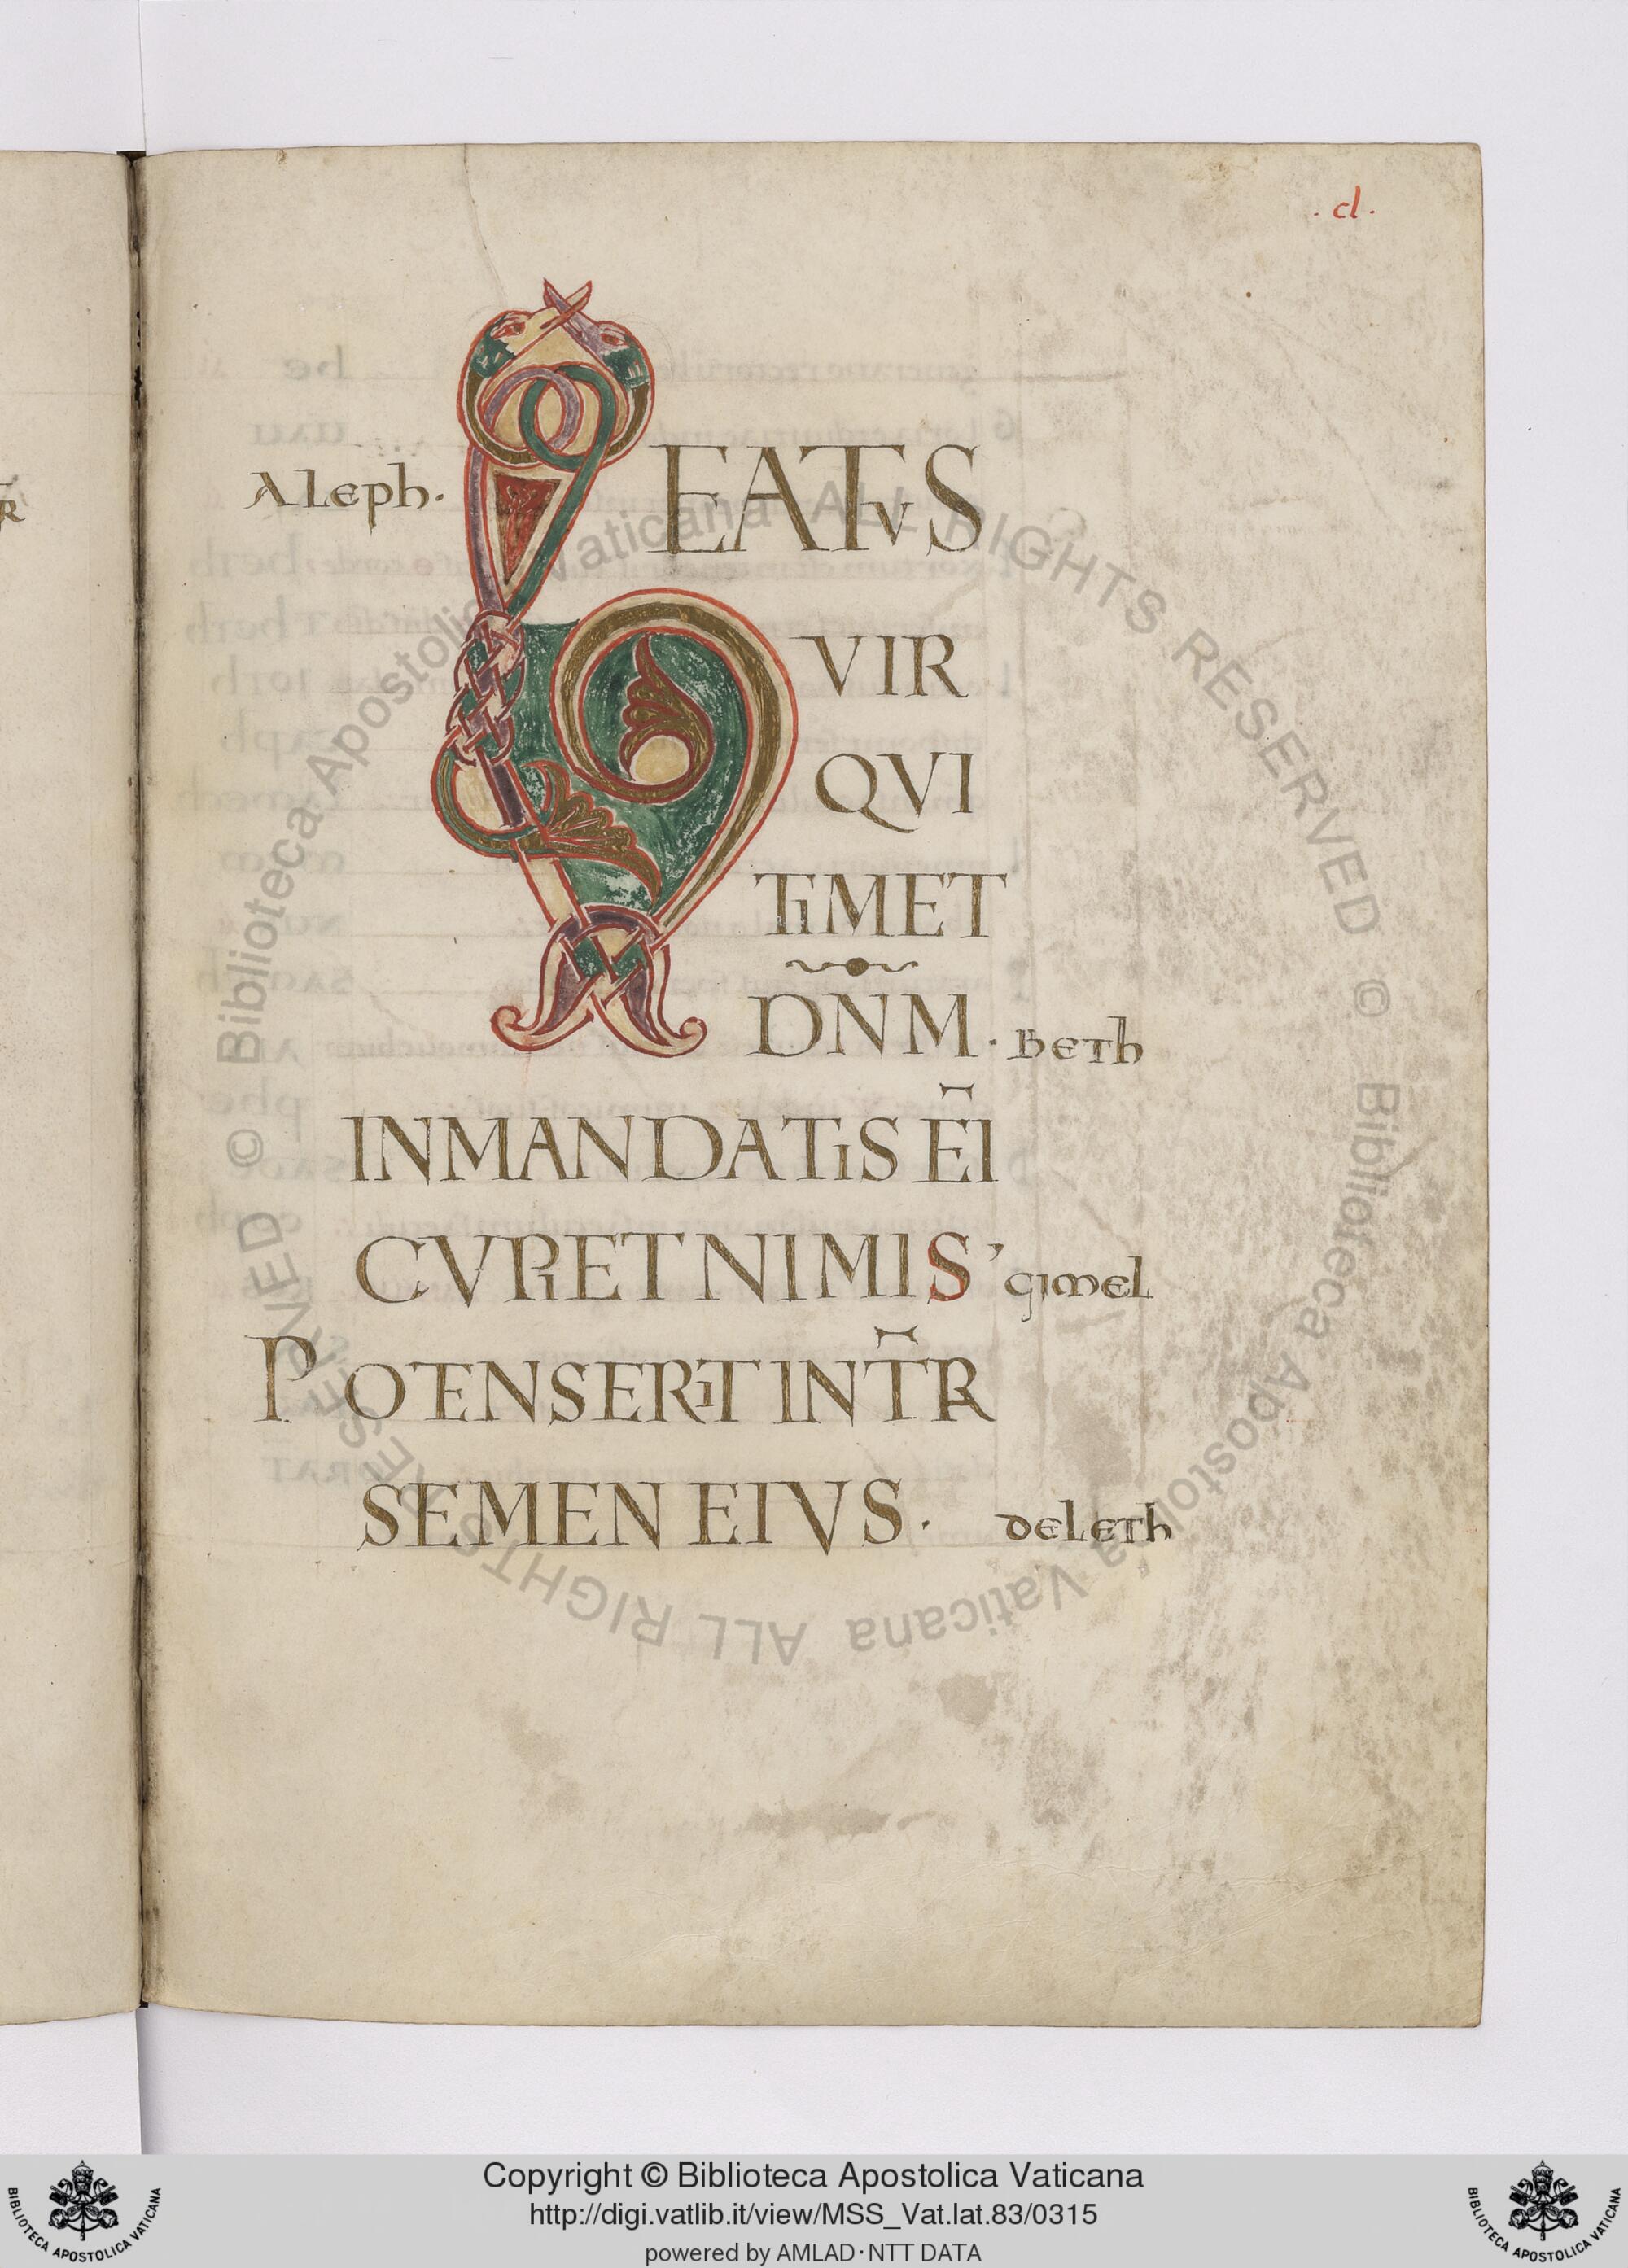 . cl .
Aleph. BEATVS
VIR
QVI
TIMET
DN̄M. Beth
INMANDATIS EĪ
CVPIET NIMIS ’ gimel
POTENS ERIT IN TR̄A
SEMEN EIVS. deleth
© Biblioteca Apostolica Vaticana ALL RIGHTS RESERVED © Biblioteca Apostolica Vaticana ALL RIGHTS RESERVED
Copyright © Biblioteca Apostolica Vaticana
http://digi.vatlib.it/view/MSS_Vat.lat.83/0315
powered by AMLAD·NTT DATA
BIBLIOTECA APOSTOLICA VATICANA
BIBLIOTECA APOSTOLICA VATICANA